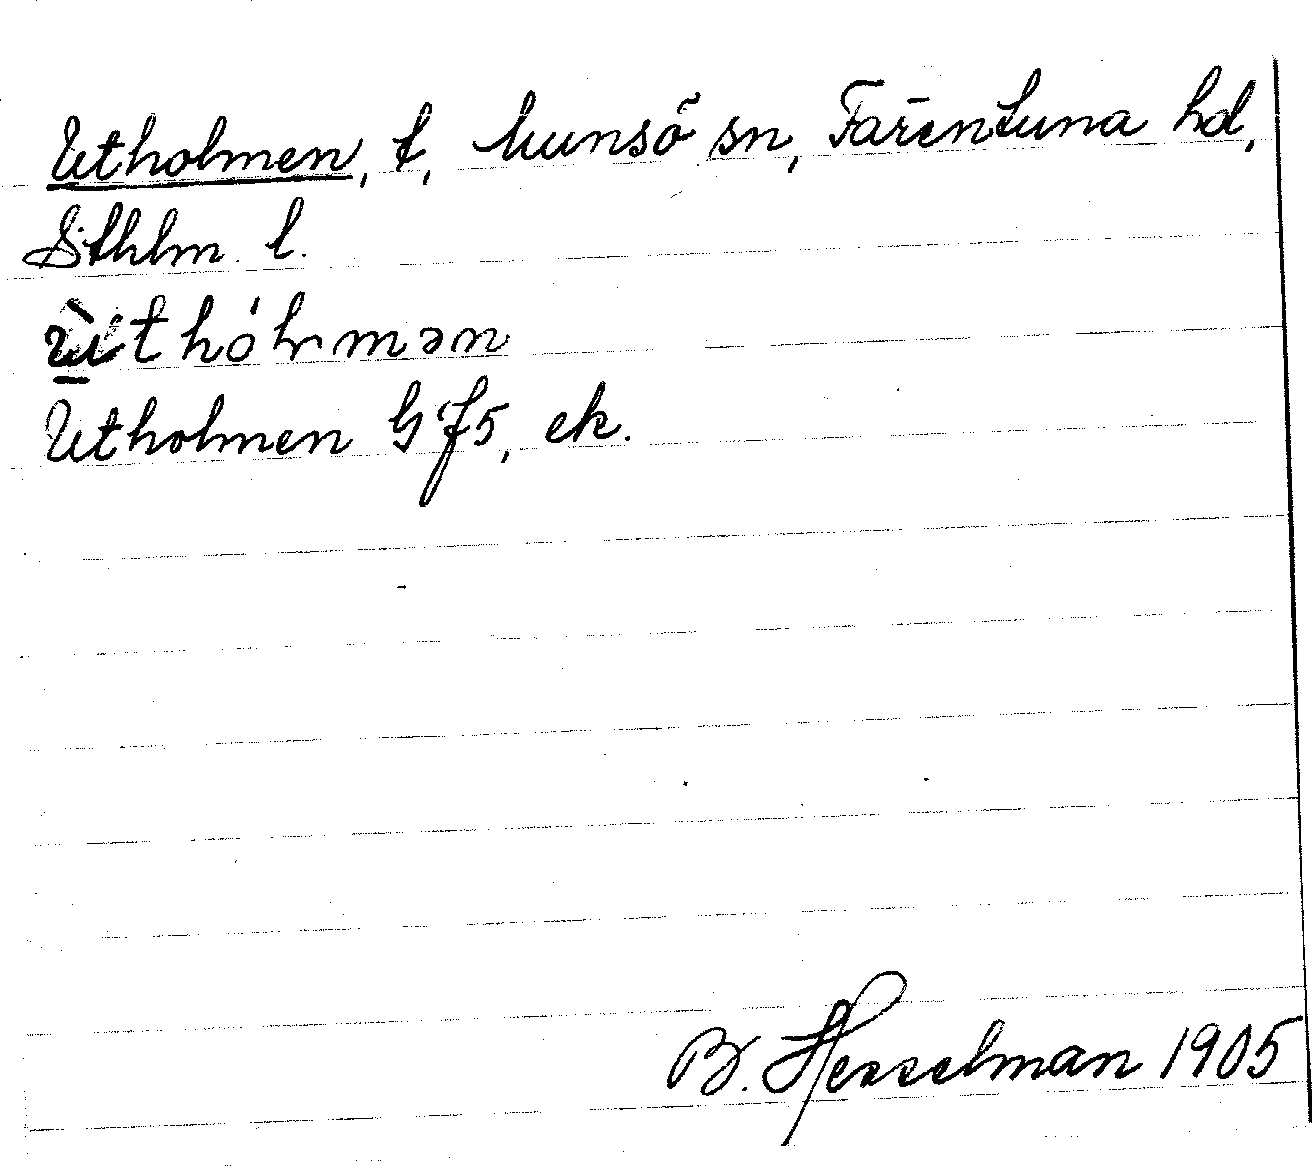 Utholmen, t, Munsö sn, Färentuna hd,
Sthlm l.
ùthólmən
Utholmen G f5, ek.
B. Hesselman 1905